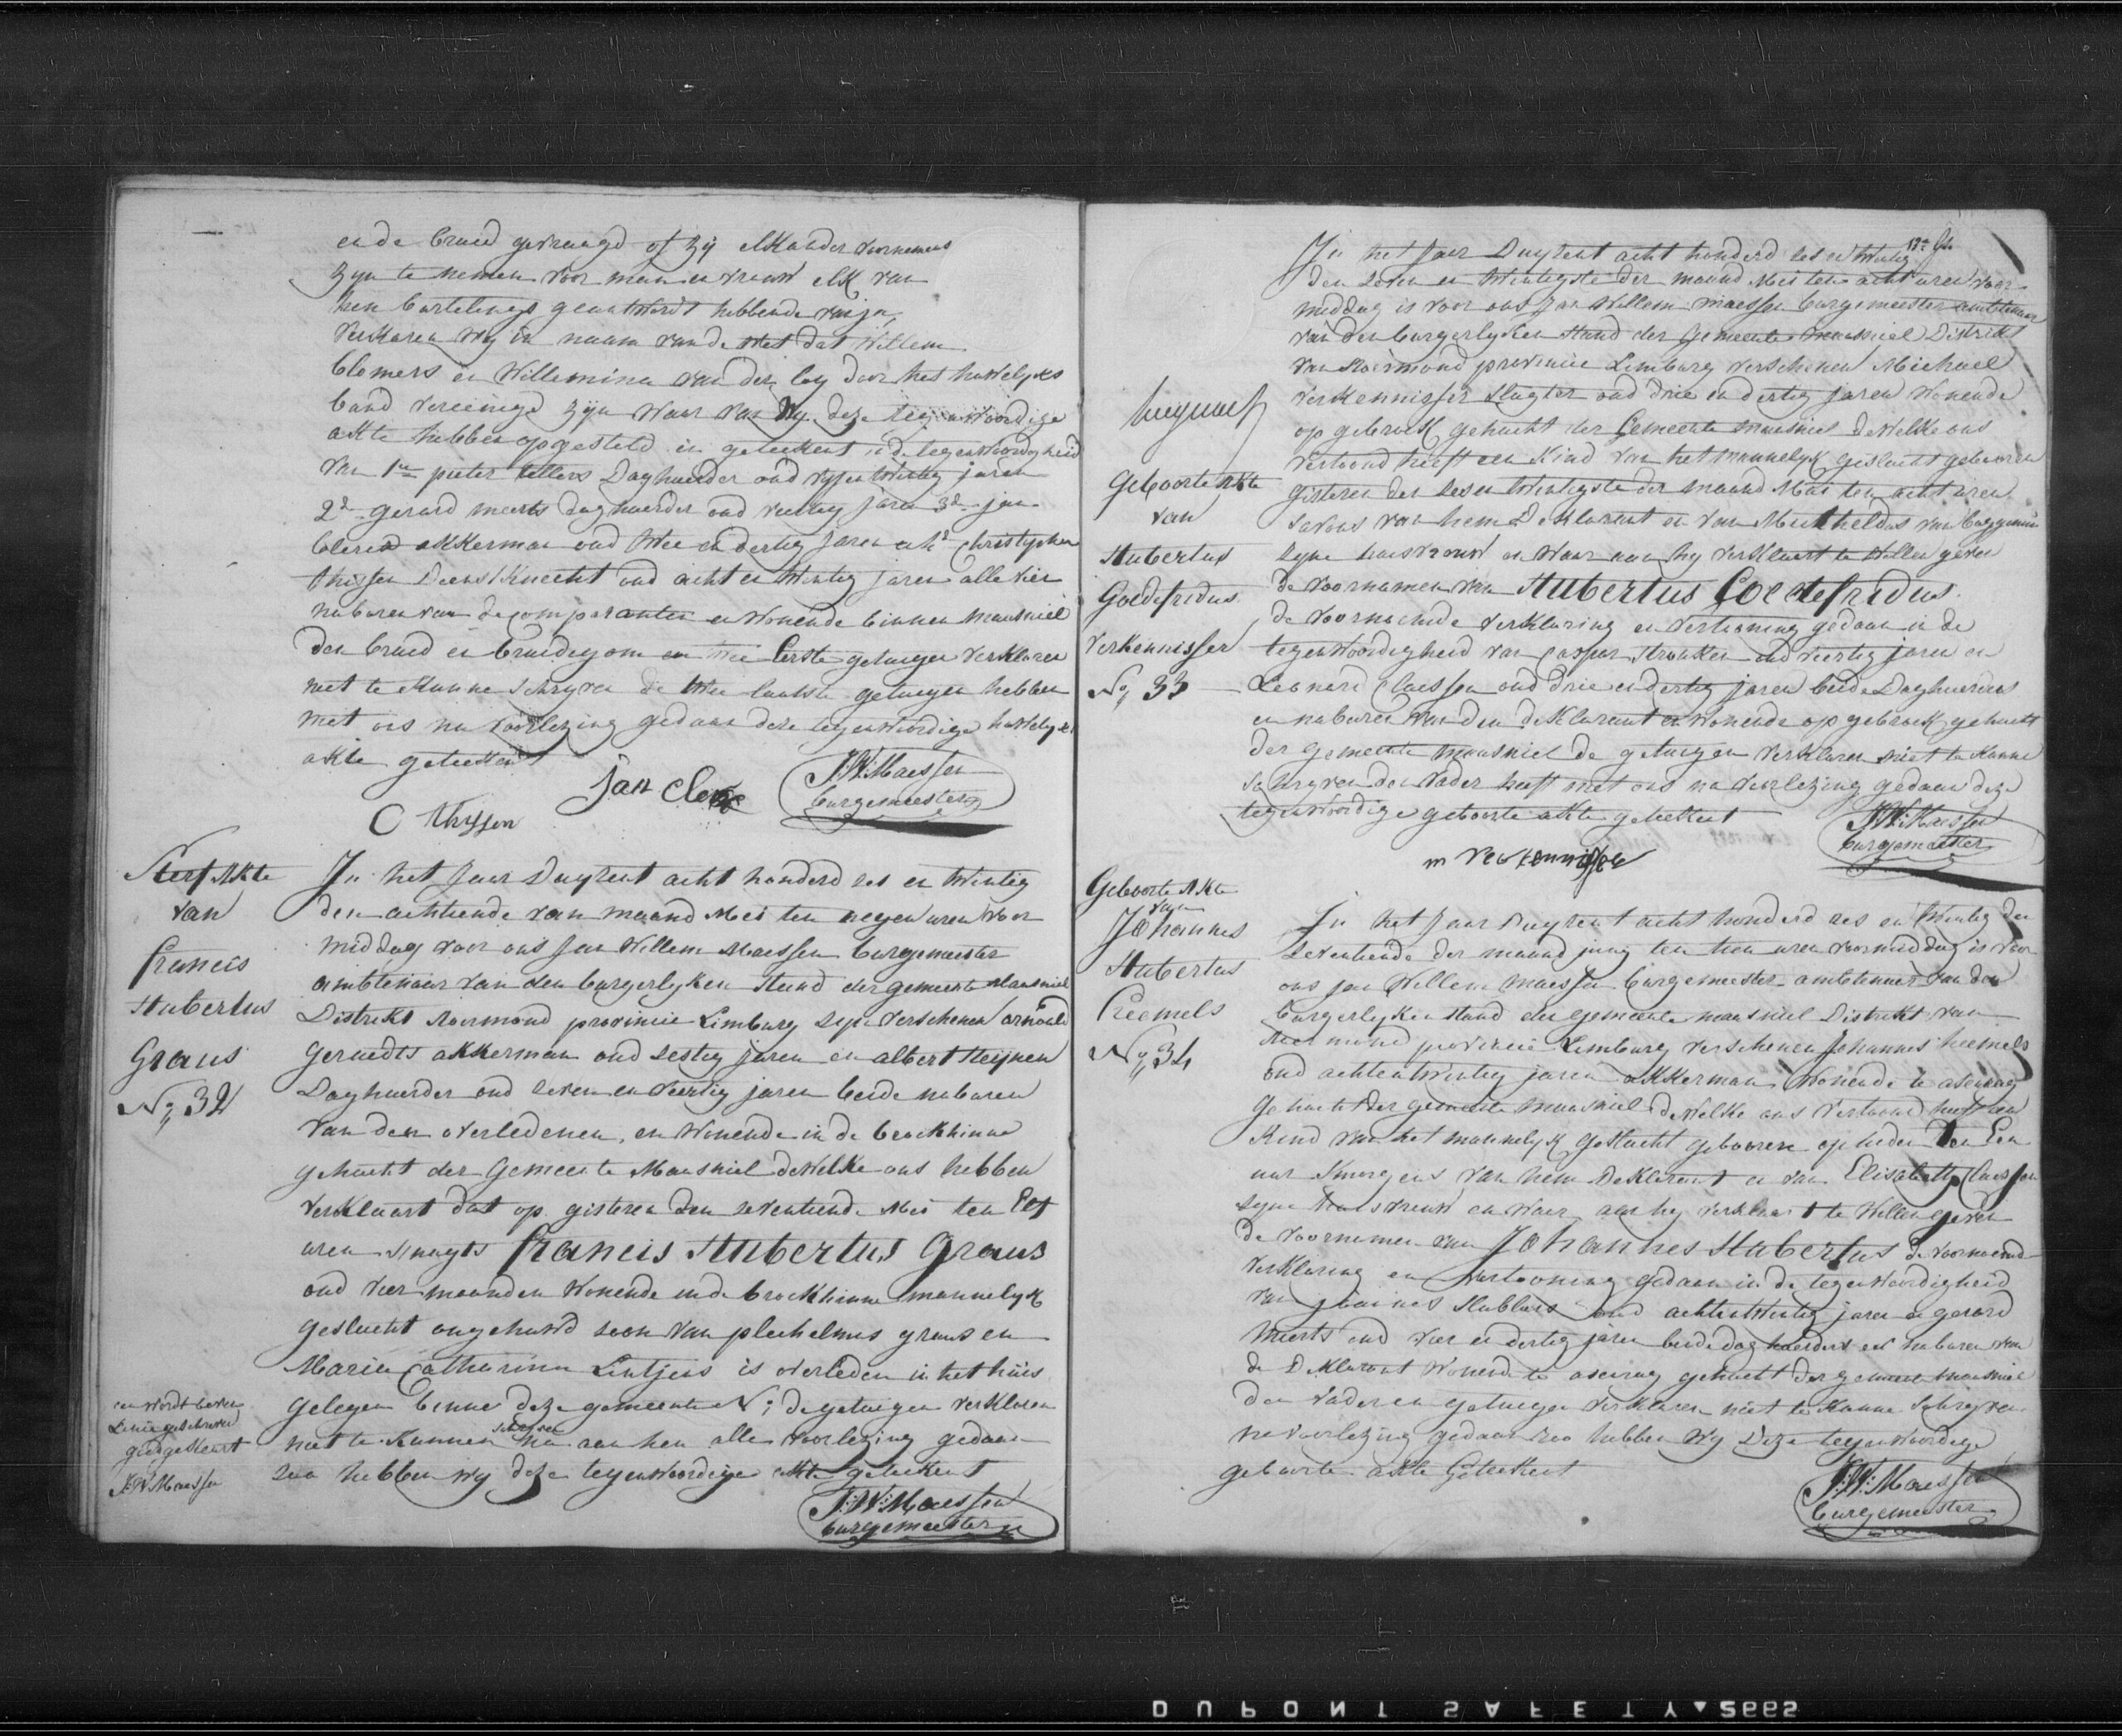 en de bruid gevraagd of zij elkander voornemens
zyn te nemen voor man en vrouw elk van
hen bortelings geantwoordt hebbende van ja,
verklaren wy in naam van de wet dat Willem
Clomers en Willemina van der ley door het huwelyks
band vereenigd zyn waar van wy deze tegenwoordige
akte hebben opgesteld en geteekent in de tegenwoordigheid
van 1ste pieter tellers Daghuerder oud vyfen twintig jaren
2de gerard meerts daghuerder oud veertig jaren 3de jan
Cleren akkerman oud twee en dertig jaren en 4de Christyphen
thissen Dienstknecht oud acht en twintig jaren alle vier
naburen van de comparanten en wonende binnen maasniel
den bruid en bruidegom en twee Eerste getuigen verklaren
niet te kunne schryven de twee laatste getuigen hebben
met ons na voorlezing gedaan deze tegenwoordige huwelyks
akte geteekent
Jan Cleren
J:W: Maessen
burgemeester
C Thyssen
Sterf Akte
van
francis
Hubertus
Graus
No 32
In het Jaar Duyzent acht honderd ses en twintig
den achtiende van maand Mei ten negen uren voor
middag voor ons Jan Willem Maessen burgemeester
ambtenaar van den burgerlyken stand der gemeente Maasniel
Distrikt Roermond provincie Limburg zyn verschenen arnould
Geraedts akkerman oud sestig jaren en albert steijnen
Daghuerder oud seven en veertig jaren beide naburen
van den overledenen, en wonende in de broekhinne
gehucht der Gemeente Maasniel dewelke ons hebben
verklaart dat op gisteren den seventiende Mei ten Elf
uren snagts francis Hubertus Graus
oud vier maanden wonende in de broekhinne mannelyk
geslacht ongehuwd soon van plechelmus graus en
Maria Catharina Lintjens is overleden in het huis
gelegen binne deze gemeente No ; de getuigen verklaren
niet te kunnen schryven na aan hen alle voorlezing gedaan
soo hebben wy deze tegenwoordige akte geteekent
en wordt boven
Linie geschreven
goedgekeurt
J:W: Maessen
J:W: Maessen
burgemeester
13de
In het Jaar Duyzent acht honderd ses en twintig
den seven en twintigste der maand Mei ten acht uren voor
middag is voor ons Jan Willem Maessen burgemeester ambtenaar
van den burgerlyken stand der Gemeente Maasniel Distrikt
van Roermond provincie Limburg verschenen Michael
Verkennisser slagter oud drie en dertig jaren wonende
op gebroek gehucht der Gemeente maasniel dewelke ons
vertoond heeft een kind van het mannelyk geslacht gebooren
gisteren den ses en twintigste der maand Mai ten acht uren
savons van hem Deklarant en van Mechheldas van
zyne huisvrouw en waar aan hy verklaart te willen geven
de voornamen van Hubertus Goedefridus
de voornoemde verklaring en vertooning gedaan in de
tegenwoordigheid van Caspar Stronken oud veertig jaren en
Leonard Claessen oud drie en dertig jaren beide Daghuerders
en naburen van den deklarant en wonende op gebroek gehucht
der Gemeente Maasniel de getuigen verklaren niet te kunne
schryven den vader heeft met ons na voorlezing gedaan deze
tegenwoordige geboorte akte geteekent
Geboorte Akte
van
Hubertus
Goedefridus
Verkennisser
No 33
J:W: Maessen
burgemeester
m verkennisser
Geboorte Akte
van
Johannes
Hubertus
Heemels
No 34
In het Jaar Duyzent acht honderd ses en twintig den
seventiende der maand juny ten tien uren voormiddag is voor
ons jan Willem Maessen burgemeester ambtenaar van den
burgerlyken stand der gemeente maasniel Distrikt van
Roermond provincie Limburg verschenen Johannes heemels
oud acht en twintig jaren akkerman wonende te asenray
gehucht der gemeente Maasniel dewelke ons vertoond heeft een
kind van het mannelyk geslacht gebooren op heden ten Een
uur smorgens van hem Deklarant en van Elisabeth Claessen
zyne huisvrouw en waar aan hy verklaart te willen geven
de voornamen van Johannes Hubertus de voornoemde
verklaring en vertooning gedaan in de tegenwoordigheid
van joannes Hubbers oud acht en twintig jaren en gerard
Meerts oud vier en dertig jaren beide daghuerders en naburen van
de Deklarant wonende te asenray gehucht der gemeente maasniel
den vader en getuigen verklaren niet te kunne schryven
na voorlezing gedaan soo hebben wy deze tegenwoordige
geboorte akte geteekent
J:W: Maessen
burgemeester
DUPONT SAFETY